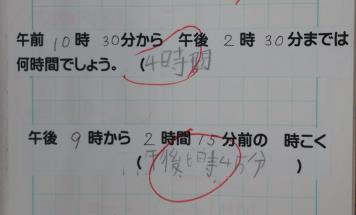 午前 10時 30分から 午後 2時 30分までは
何時間でしょう。 (4時間
午後 9時から 2時間 15分前の 時こく
(午後6時45分 )